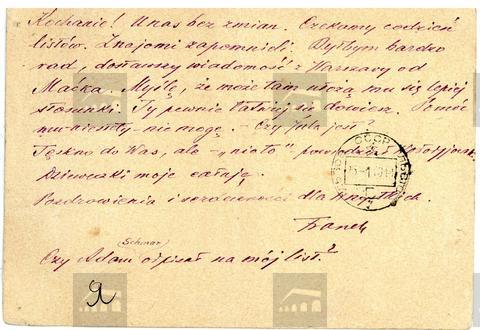 Kochanie! U nas bez zmian. Czekamy codzień
listów. Znajomi zapomnieli. Byłbym bardzo
rad, dostawszy wiadomość z Warszawy od
Maćka. Myślę, że może tam ułożą mu się lepiej
stosunki. Ty pewnie łatwiej się dowiesz. Pomóc
mu niestety - nie mogę. - Czy Jula jest?
Tęskno do Was, ale - „nioto" powiedział
Dzieweczki moje całuję.
Pozdrowienia i serdeczności dla wszystkich.
Franek
(Schmar)
Czy Adam odpisał na mój list?
СССР